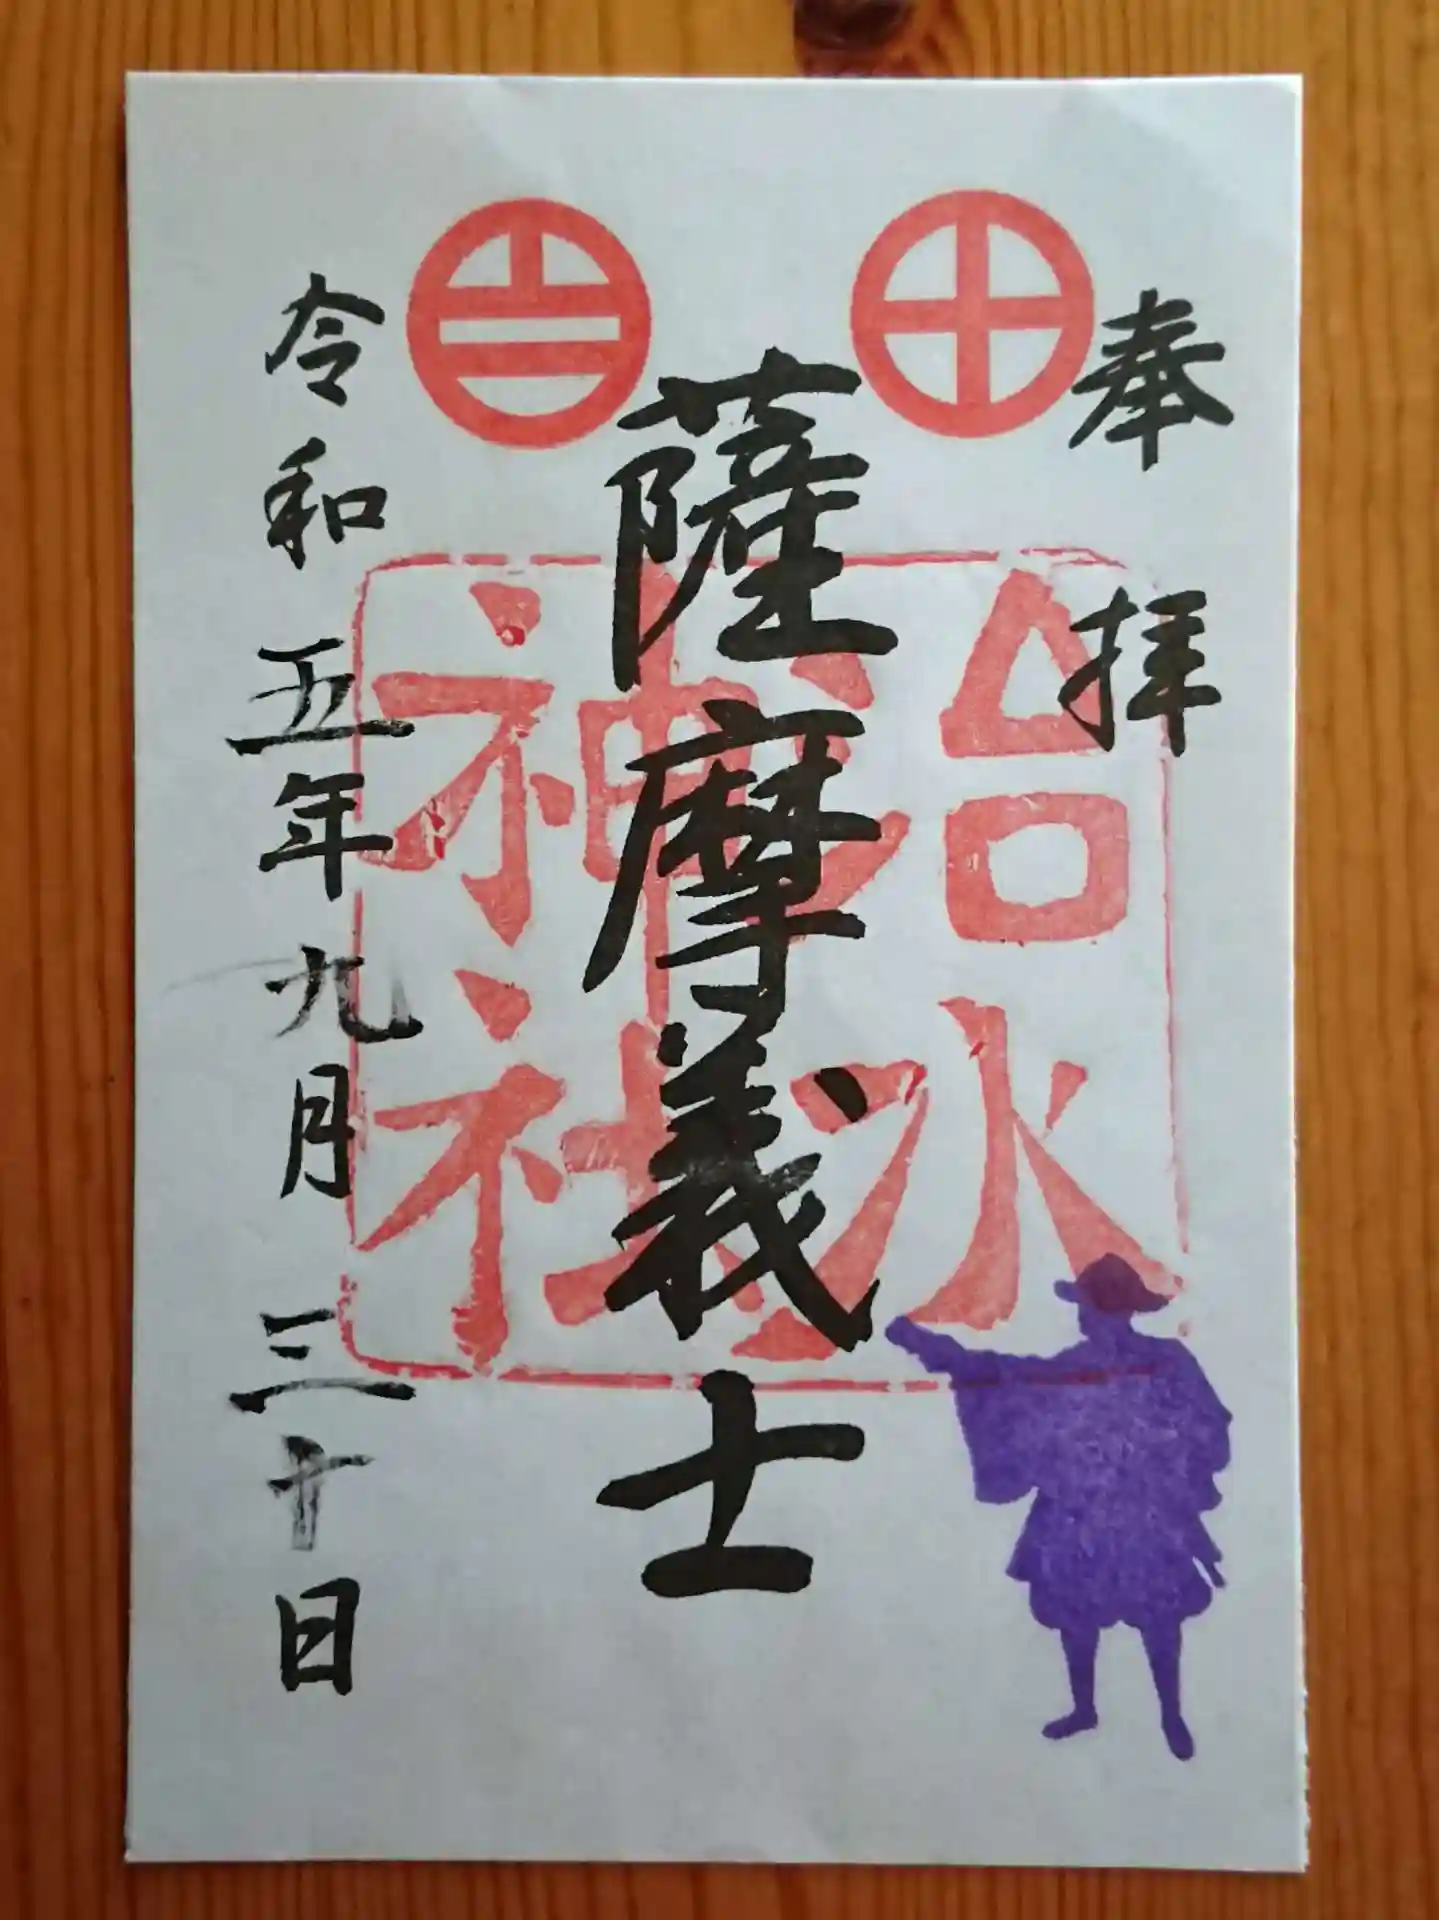 奉拝
薩摩義士
治水神社
令和五年九月三十日